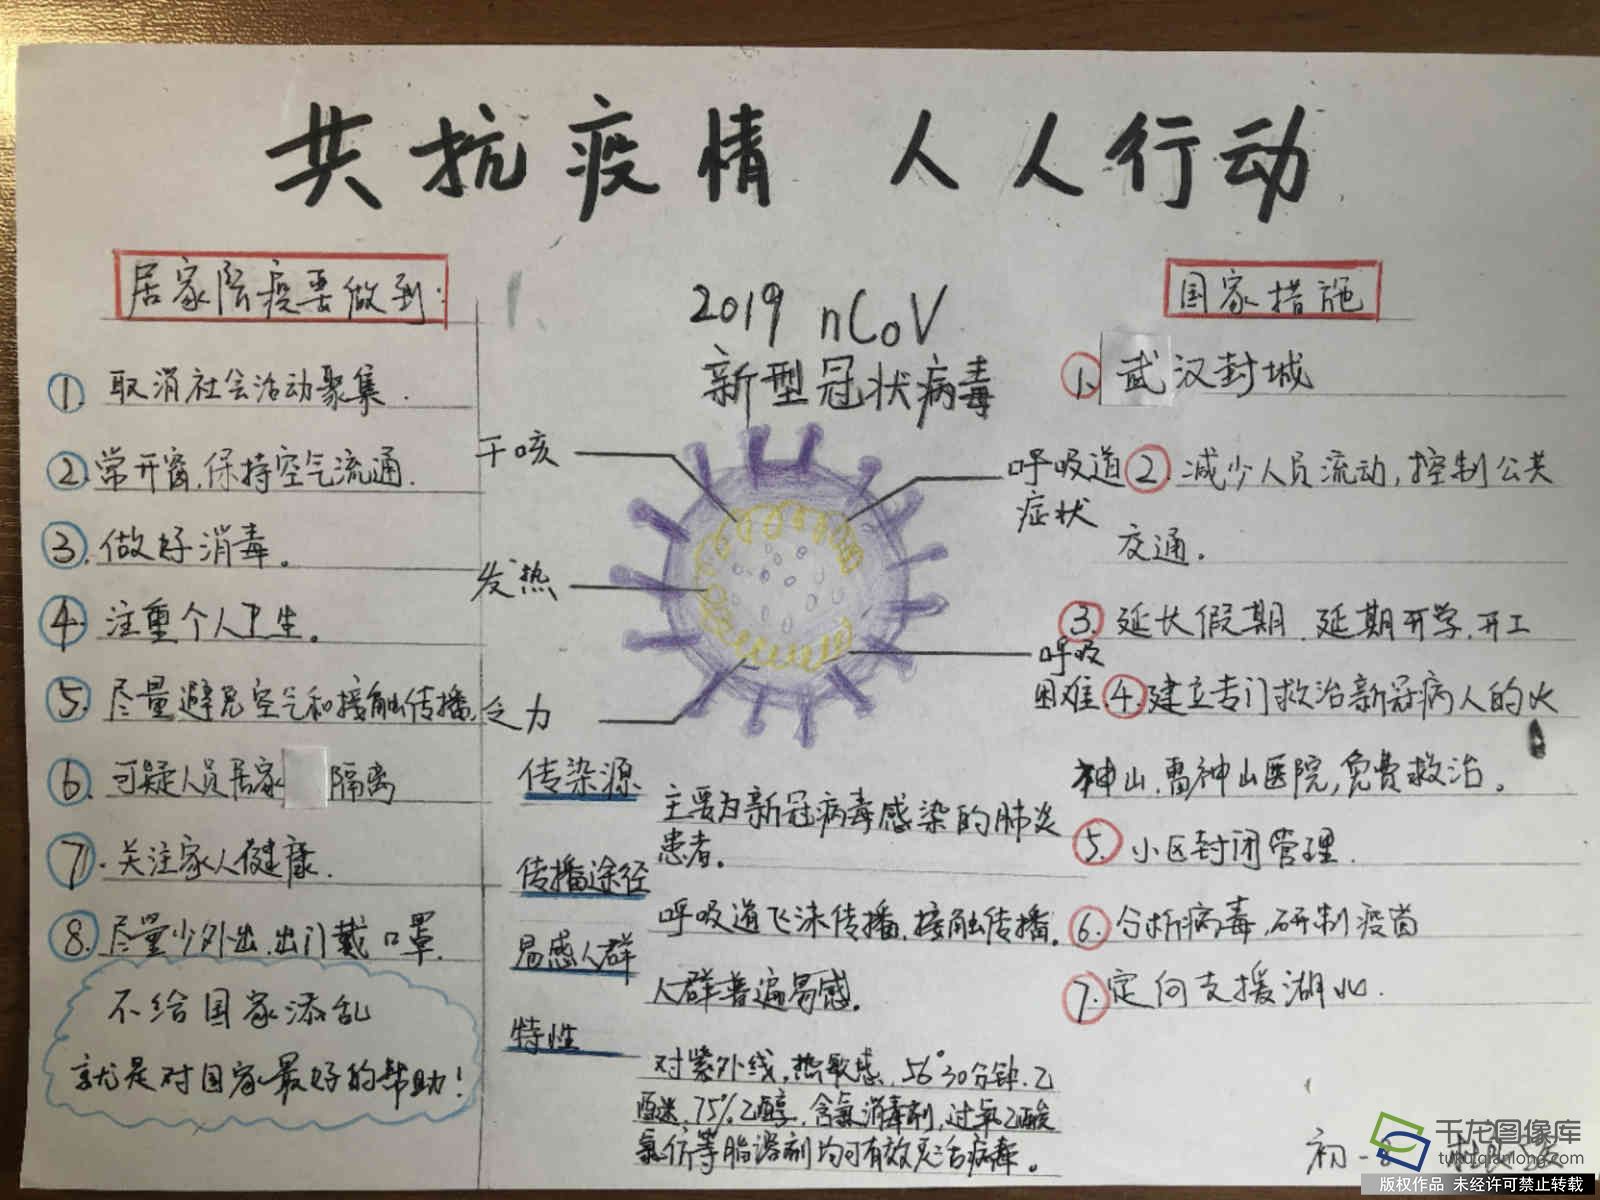 共抗疫情 人人行动
居家防疫要做到:
① 取消社会活动聚集.
② 常开窗,保持空气流通.
③. 做好消毒。
④. 注重个人卫生。
⑤. 尽量避免空气和接触传播.
⑥. 可疑人员居家 隔离
⑦. 关注家人健康.
⑧. 尽量少外出,出门戴口罩.
不给国家添乱
就是对国家最好的帮助!
2019 nCoV
新型冠状病毒
干咳
发热
乏力
呼吸道
症状
呼吸
困难
传染源
主要为新冠病毒感染的肺炎
患者。
传播途径
呼吸道飞沫传播,接触传播。
易感人群
人群普遍易感。
特性
对紫外线,热敏感,56°30分钟,乙
醚,75%乙醇,含氯消毒剂,过氧乙酸
氯仿等脂溶剂均可有效灭活病毒。
国家措施
①. 武汉封城
②. 减少人员流动,控制公共
交通。
③. 延长假期,延期开学,开工
④. 建立专门救治新冠病人的火
神山,雷神山医院,免费救治。
⑤. 小区封闭管理.
⑥. 分析病毒,研制疫苗
⑦. 定向支援湖北.
初一8
千龙图像库
tuku.qianlong.com
版权作品 未经许可禁止转载